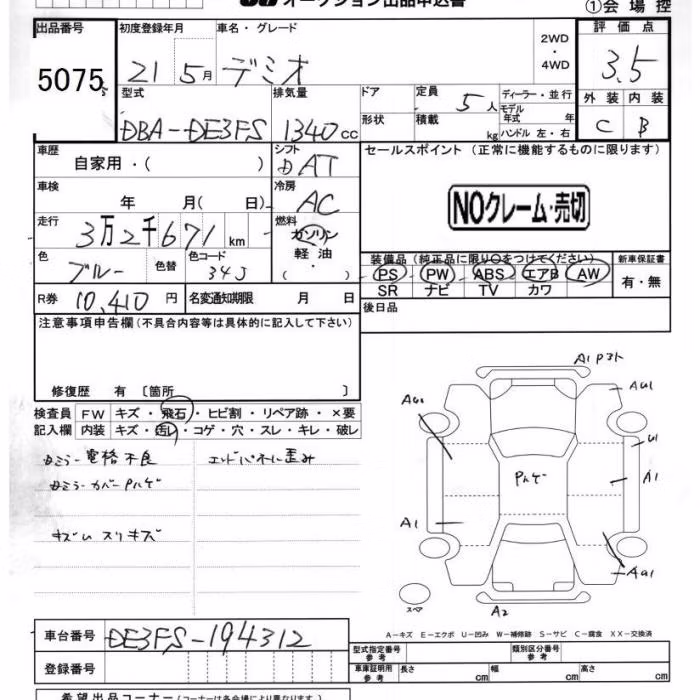 オークション出品申込書
①会場控
出品番号 初度登録年月 車名・グレード 2WD・4WD 評価点
5075 21 5月 デミオ 3.5
型式 排気量 ドア 定員 5人 ディーラー・並行 外装 内装
DBA-DE3FS 1340cc 形状 積載 kg モデル年式 年 ハンドル 左・右 C B
車歴 自家用・( ) シフト DAT
セールスポイント (正常に機能するものに限ります)
車検 年 月( 日) 冷房 AC
NOクレーム・売切
走行 3万2千671km 燃料 ガソリン 軽油 ( ・ )
色 ブルー 色替 色コード 34J
装備品(純正品に限り○をつけてください) 新車保証書
PS PW ABS エアB AW 有・無
SR ナビ TV カワ
R券 10,410円 名変通知期限 月 日
後日品
注意事項申告欄(不具合内容等は具体的に記入して下さい)
修復歴 有 〔箇所 〕
検査員 FW キズ・飛石・ヒビ割・リペア跡・×要
記入欄 内装 キズ・汚れ・コゲ・穴・スレ・キレ・破レ
電格不良 エンドパネルに歪み
カバー
キズ
スリキズ
A1
AU1
U1
A1
A1
AU1
A2
スペア
A-キズ E-エクボ U-凹み W-補修跡 S-サビ C-腐食 XX-交換済
車台番号 DE3FS-194312
型式指定番号 参考 類別区分番号 参考
登録番号 車庫証明用 参考 長さ cm 幅 cm 高さ cm
希望出品コーナー(コーナーは各会場により異なります。)